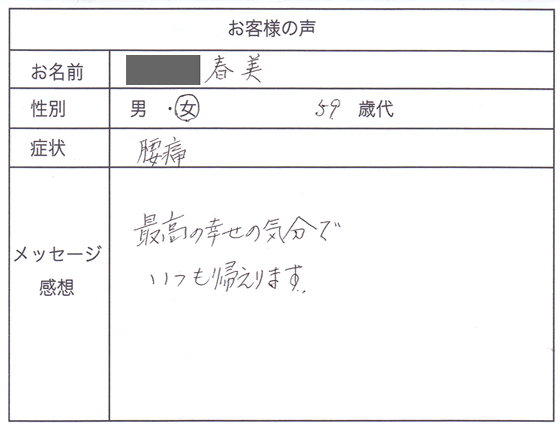 お客様の声
お名前 春美
性別 男 ・女 59 歳代
症状 腰痛
メッセージ
感想
最高の幸せの気分で
いつも帰えります。